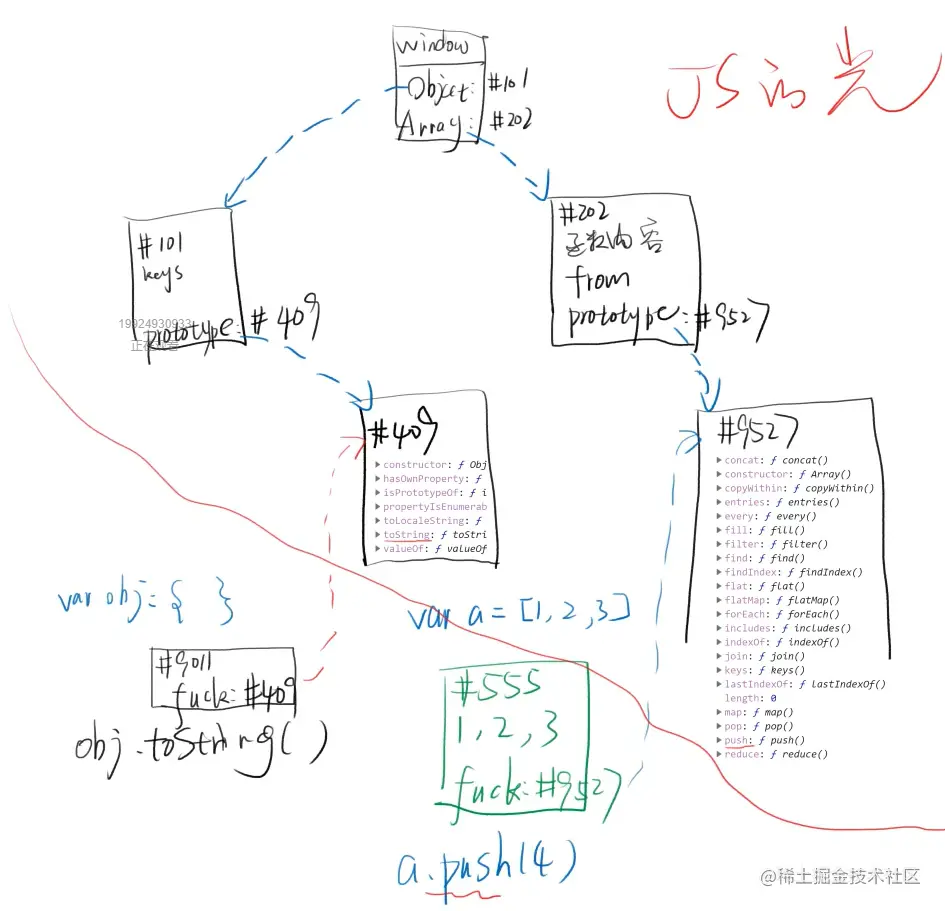 window
Object: #101
Array: #202
JS的光
#101
keys
prototype: #409
19924930933
正在观看
#202
函数内容
from
prototype: #9527
#409
constructor: ƒ Obj
hasOwnProperty: ƒ
isPrototypeOf: ƒ i
propertyIsEnumerab
toLocaleString: ƒ
toString: ƒ toStri
valueOf: ƒ valueOf
#9527
concat: ƒ concat()
constructor: ƒ Array()
copyWithin: ƒ copyWithin()
entries: ƒ entries()
every: ƒ every()
fill: ƒ fill()
filter: ƒ filter()
find: ƒ find()
findIndex: ƒ findIndex()
flat: ƒ flat()
flatMap: ƒ flatMap()
forEach: ƒ forEach()
includes: ƒ includes()
indexOf: ƒ indexOf()
join: ƒ join()
keys: ƒ keys()
lastIndexOf: ƒ lastIndexOf()
length: 0
map: ƒ map()
pop: ƒ pop()
push: ƒ push()
reduce: ƒ reduce()
var obj = { }
#9011
fuck: #409
obj.toString()
var a = [1, 2, 3]
#555
1, 2, 3
fuck: #9527
a.push(4)
@稀土掘金技术社区